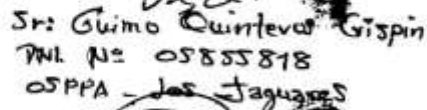 Sr: Guimo Quinteros Crispin
DNI. Nº 05855818
OSPPA - Los Jaguares